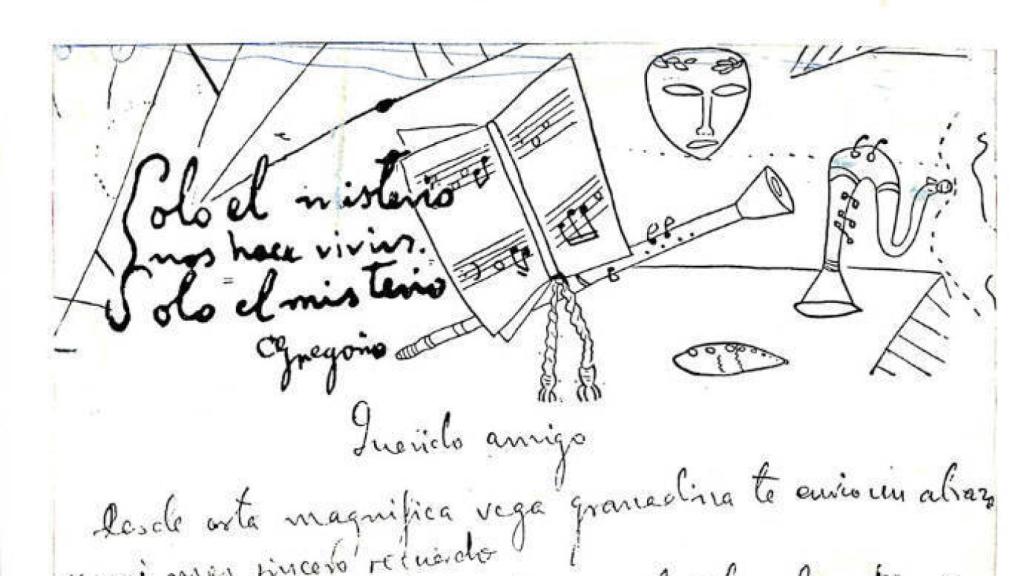 Solo el misterio
nos hace vivir.
Solo el misterio
Gregorio
Querido amigo
Desde esta magnifica vega granadina te envio un abrazo
sincero recuerdo